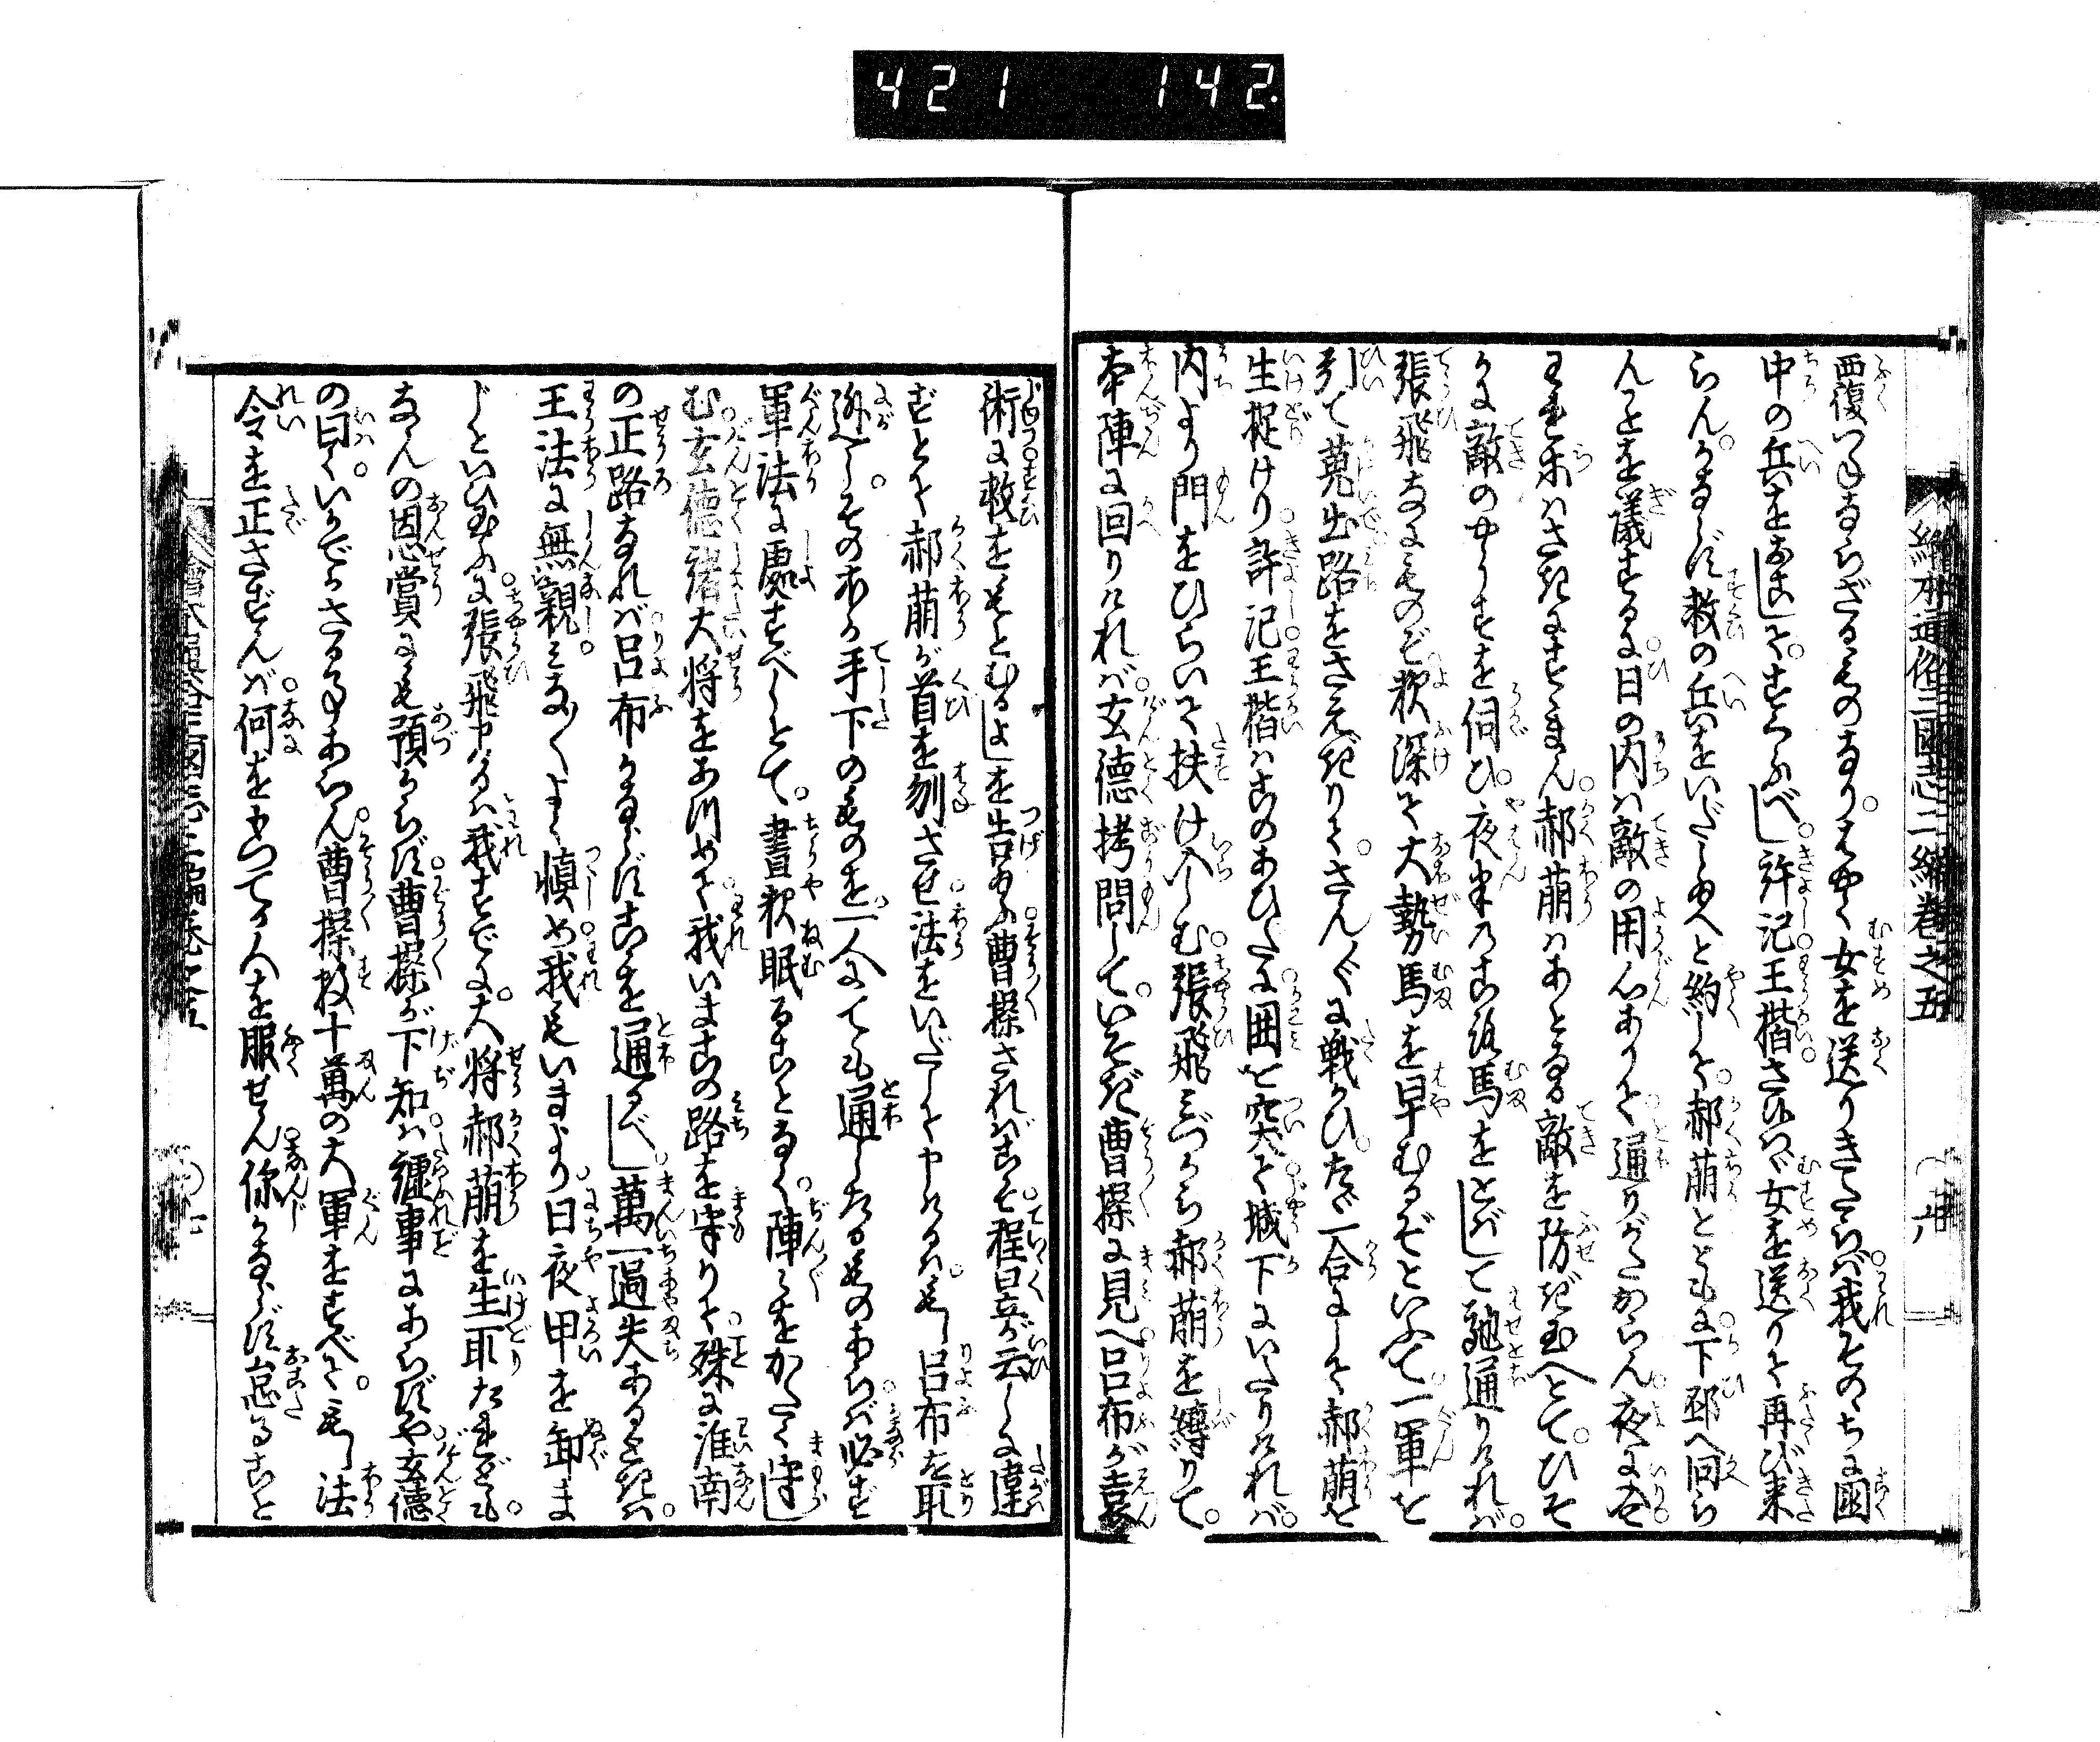 421 142.
繪本通俗三國志二編巻之五
覆つねならざるものなり。はやく女を送りきたらば。我そのゝちに國
中の兵をおこして。すくふべし。許記。王楷。さらば女を送りて再び来
らん。かならず救の兵をいだし給へと約して。郝萌とともに。下邳へ回ら
んことを議するに。日の内は敵の用心ありて。通りがたからん。夜に入て
われらはさきにすゝまん。郝萌はあとなる敵を防ぎ玉へとて。ひそ
かに敵のやうすを伺ひ。夜半のころ馬をとばして馳通りければ。
張飛なにものぞ。夜深て大勢馬を早むるぞといふて。一軍を
引て蒐出路をさえぎりて。さんざんに戦かひ。たゞ一合にして郝萌を
生捉けり。許記。王楷はこのあひだに。囲を突て。城下にいたりければ。
内より門をひらいて扶け入しむ。張飛みづから郝萌を縛りて。
本陣に回りければ。玄徳拷問して。いそぎ曹操に見へ。呂布が袁
術に救をもとむるよしを告給ふ。曹操さればこそ。程昱が云しに違
ずとて郝萌が首を刎させ。法をいだして申けるは。もし呂布を取
迯し。そのほか手下のものを一人にても通したるものあらば。必ず
軍法に處すべしとて。晝夜眠ることなく。陣々をかたく守らし
む。玄徳諸大将をあつめて。我いまこの路を守りて。殊に淮南
の正路なれば。呂布かならずこゝを通るべし。萬一過失あるときは。
王法に無親。みなよくよく慎め。我もいまより。日夜甲を卸ま
じといひ玉ふに。張飛申けるは。我すでに。大将郝萌を生取たれども。
なんの恩賞にも預からず。曹操が下知は。纏事にあらずや。玄徳
の曰く。いかでかさる事あらん。曹操数十萬の大軍をすべて。もし法
令を正さずんば。何をもつてか人を服せん。你かならず怠ることと